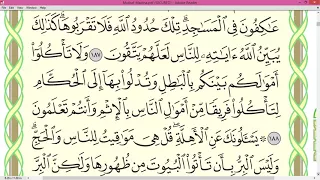 عَٰكِفُونَ فِى ٱلْمَسَٰجِدِ ۗ تِلْكَ حُدُودُ ٱللَّهِ فَلَا تَقْرَبُوهَا ۗ كَذَٰلِكَ
يُبَيِّنُ ٱللَّهُ ءَايَٰتِهِۦ لِلنَّاسِ لَعَلَّهُمْ يَتَّقُونَ ١٨٧ وَلَا تَأْكُلُوٓا۟
أَمْوَٰلَكُم بَيْنَكُم بِٱلْبَٰطِلِ وَتُدْلُوا۟ بِهَآ إِلَى ٱلْحُكَّامِ
لِتَأْكُلُوا۟ فَرِيقًا مِّنْ أَمْوَٰلِ ٱلنَّاسِ بِٱلْإِثْمِ وَأَنتُمْ تَعْلَمُونَ
١٨٨ ۞ يَسْـَٔلُونَكَ عَنِ ٱلْأَهِلَّةِ ۖ قُلْ هِىَ مَوَٰقِيتُ لِلنَّاسِ وَٱلْحَجِّ ۗ
وَلَيْسَ ٱلْبِرُّ بِأَن تَأْتُوا۟ ٱلْبُيُوتَ مِن ظُهُورِهَا وَلَٰكِنَّ ٱلْبِرَّ